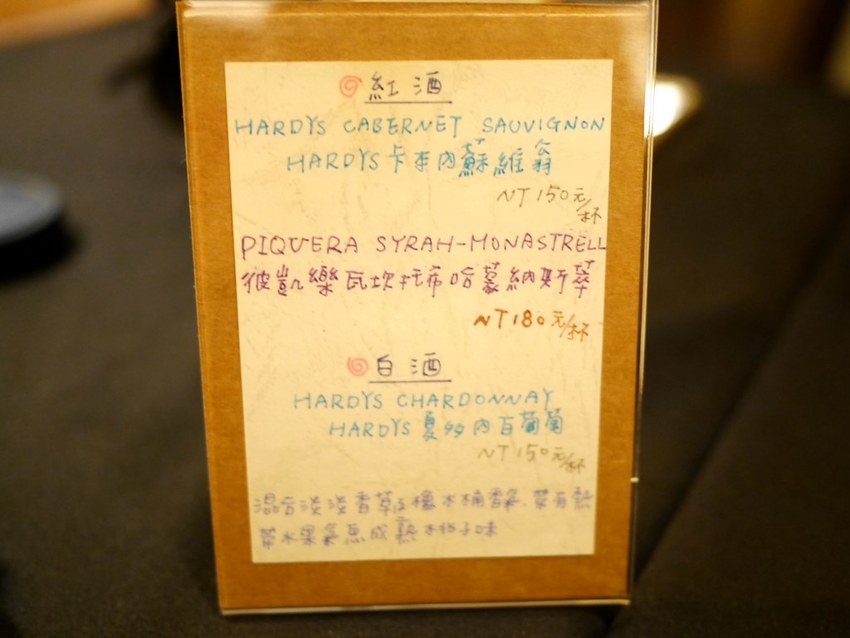 紅酒
HARDYS CABERNET SAUVIGNON
HARDYS 卡本內蘇維翁
NT150元/杯
PIQUERA SYRAH-MONASTRELL
彼凱樂瓦坎托希哈慕納斯萃
NT180元/杯
白酒
HARDYS CHARDONNAY
HARDYS 夏多內白葡萄
NT150元/杯
混合淡淡香草及橡木桶香氣.帶有熱
帶水果氣息成熟木梨子味